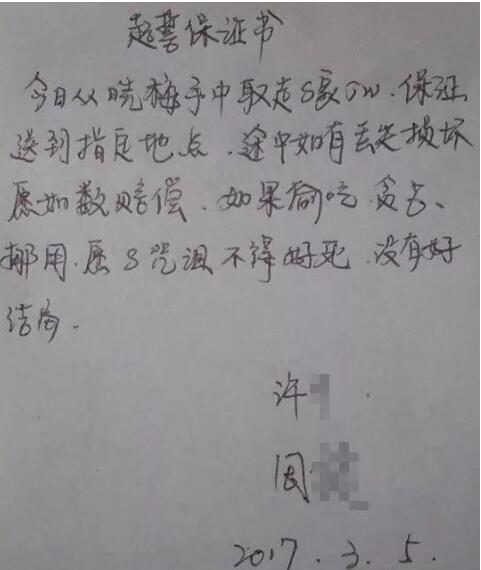 起誓保证书
今日从晓梅手中取走S家GW.保证
送到指定地点.途中如有丢失损坏
愿如数赔偿.如果偷吃.贪占、
挪用.愿S咒诅不得好死.没有好
结局.
许
周
2017.3.5.